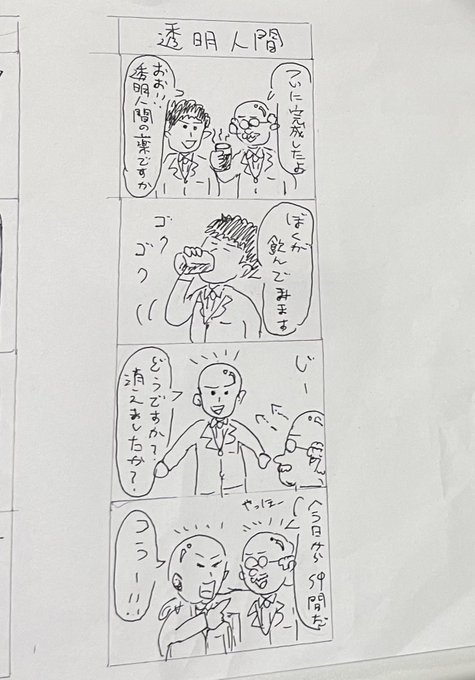 透明人間
ついに完成したよ
おお!!
透明人間の薬ですか
ぼくが
飲んでみます
ゴク
ゴク
じー
どうですか?
消えましたか?
今日から仲間だ
やっほー
コラー!!!